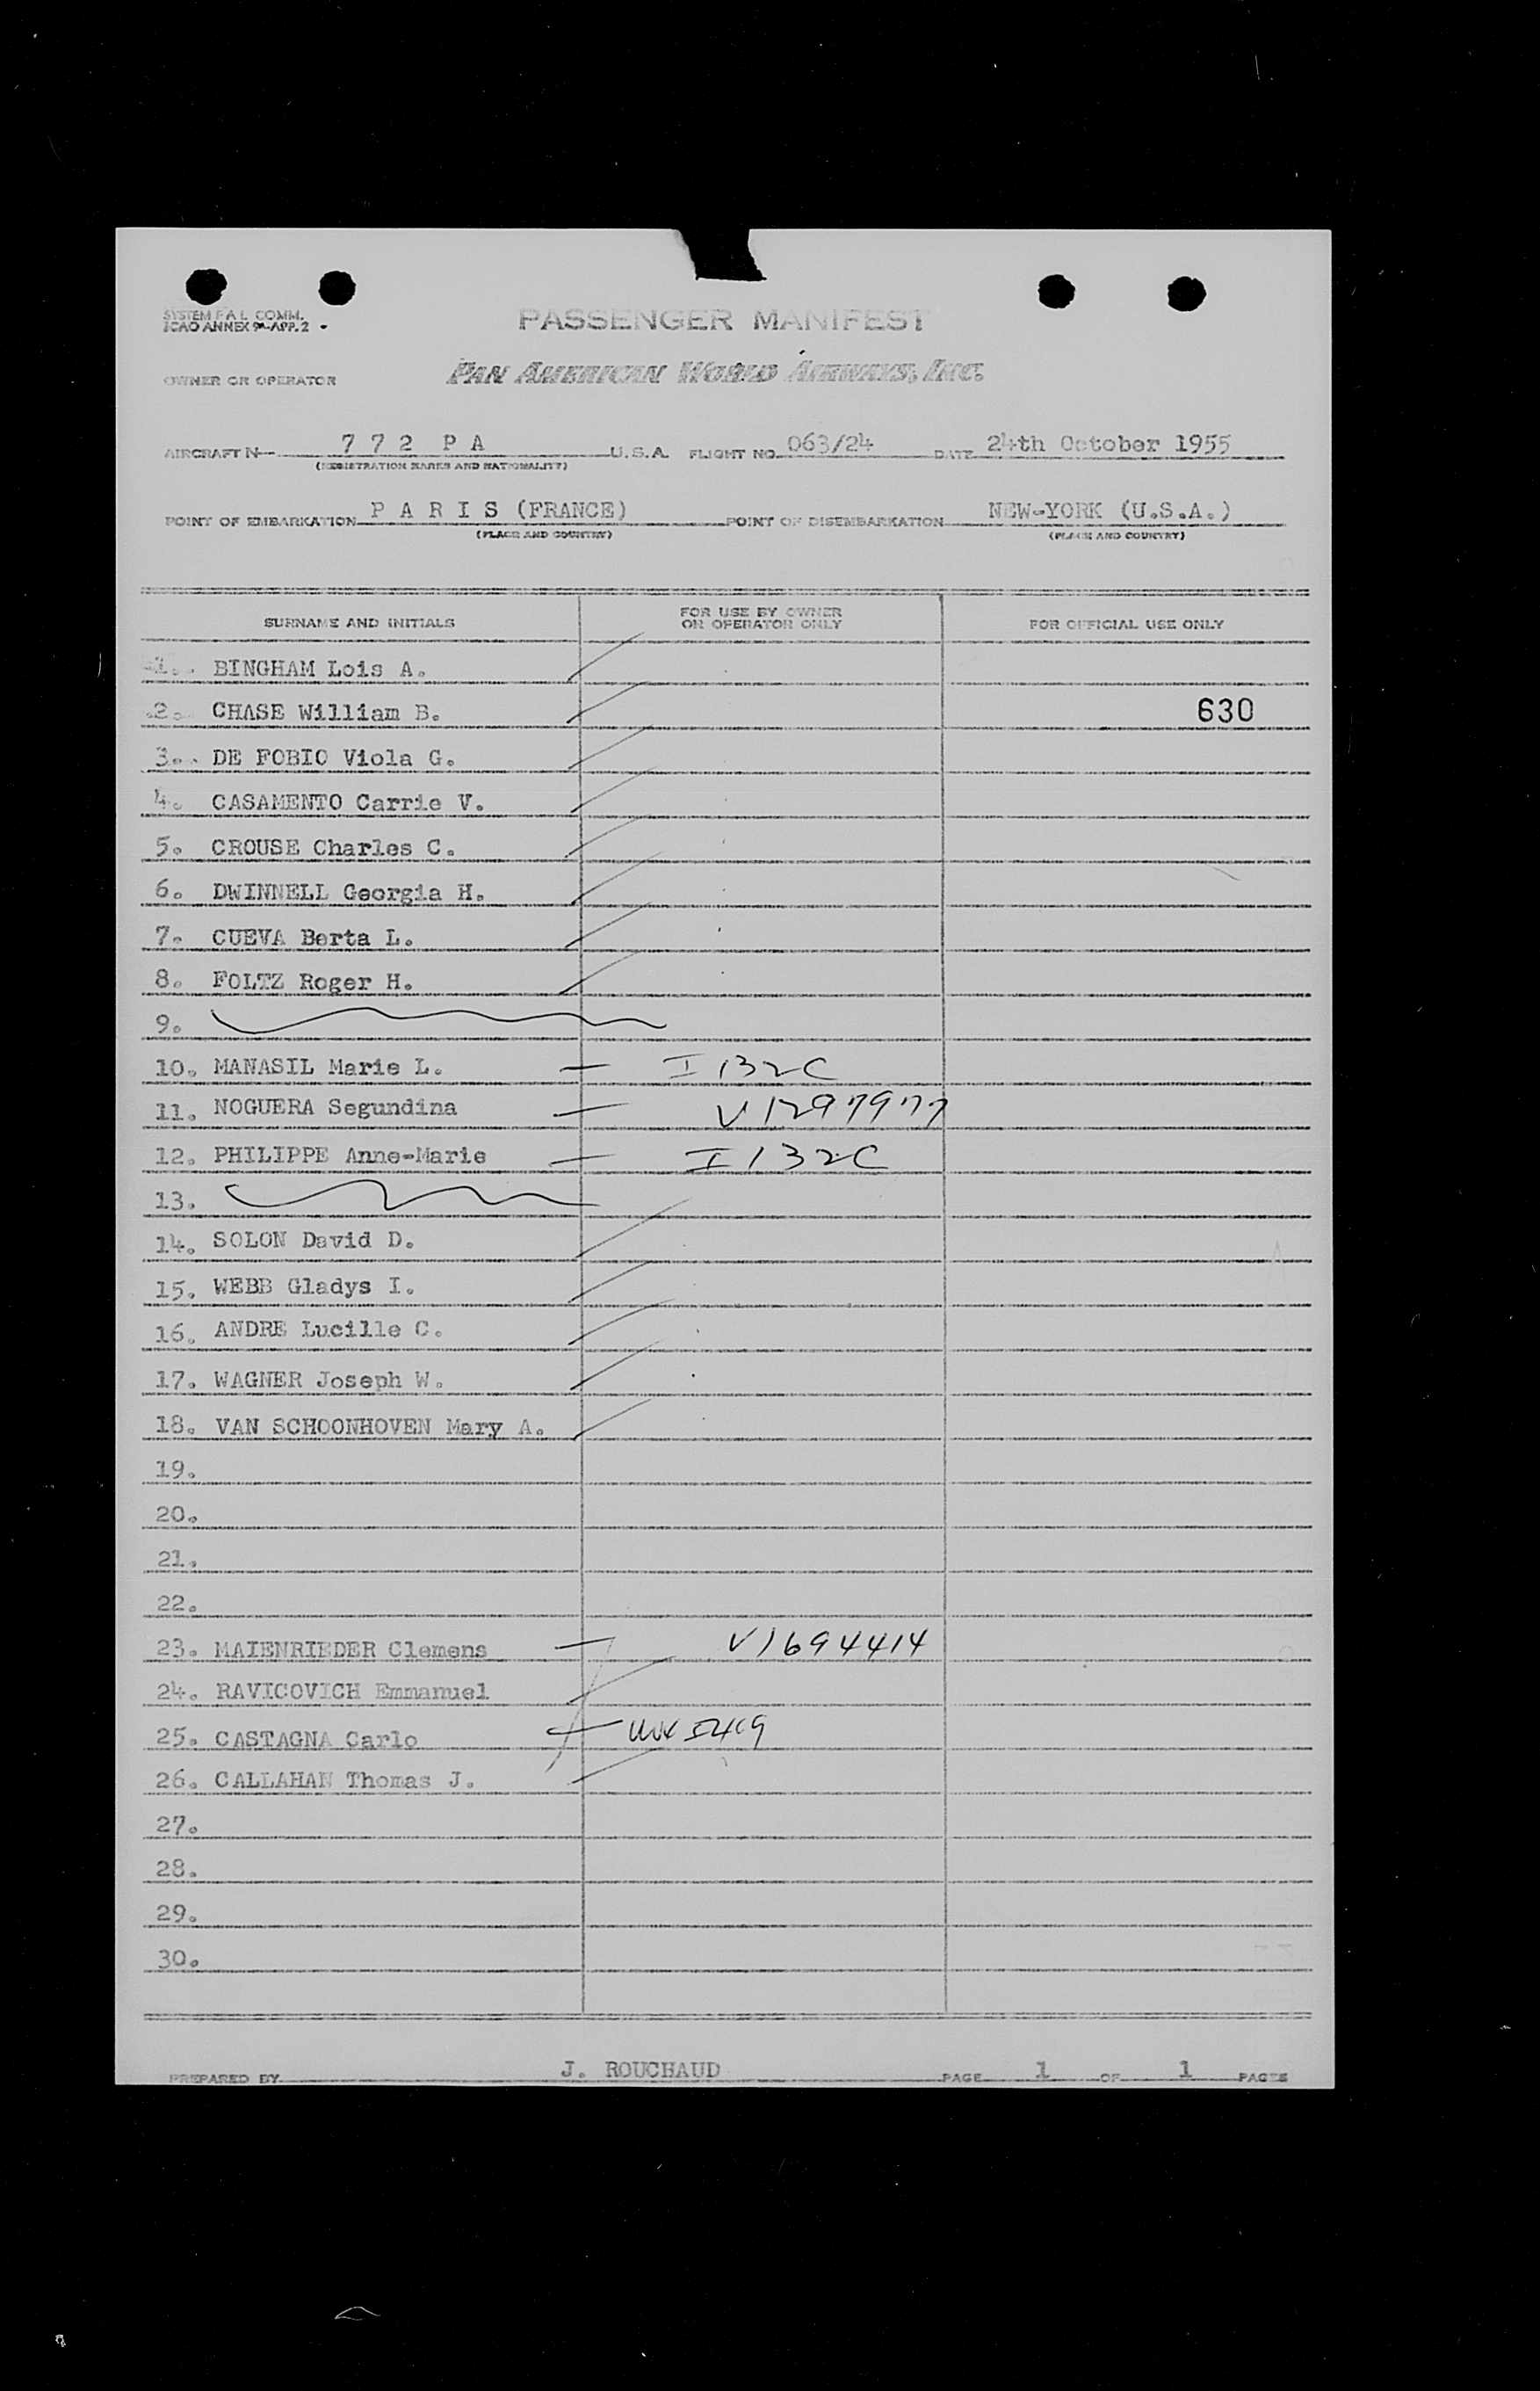 SYSTEM F A L COMM.
ICAO ANNEX 9-APP. 2
PASSENGER MANIFEST
OWNER OR OPERATOR PAN AMERICAN WORLD AIRWAYS, INC.
AIRCRAFT N 7 7 2 P A U.S.A. FLIGHT NO. 063/24 DATE 24th October 1955
(REGISTRATION MARKS AND NATIONALITY)
POINT OF EMBARKATION P A R I S (FRANCE) POINT OF DISEMBARKATION NEW-YORK (U.S.A.)
(PLACE AND COUNTRY) (PLACE AND COUNTRY)
SURNAME AND INITIALS FOR USE BY OWNER OR OPERATOR ONLY FOR OFFICIAL USE ONLY
1. BINGHAM Lois A.
2. CHASE William B. 630
3. DE FOBIO Viola G.
4. CASAMENTO Carrie V.
5. CROUSE Charles C.
6. DWINNELL Georgia H.
7. CUEVA Berta L.
8. FOLTZ Roger H.
9.
10. MANASIL Marie L. — I 132C
11. NOGUERA Segundina — V1297977
12. PHILIPPE Anne-Marie — I 132C
13.
14. SOLON David D.
15. WEBB Gladys I.
16. ANDRE Lucille C.
17. WAGNER Joseph W.
18. VAN SCHOONHOVEN Mary A.
19.
20.
21.
22.
23. MAIENRIEDER Clemens — V1694414
24. RAVICOVICH Emmanuel
25. CASTAGNA Carlo
26. CALLAHAN Thomas J.
27.
28.
29.
30.
PREPARED BY J. ROUCHAUD PAGE 1 OF 1 PAGES